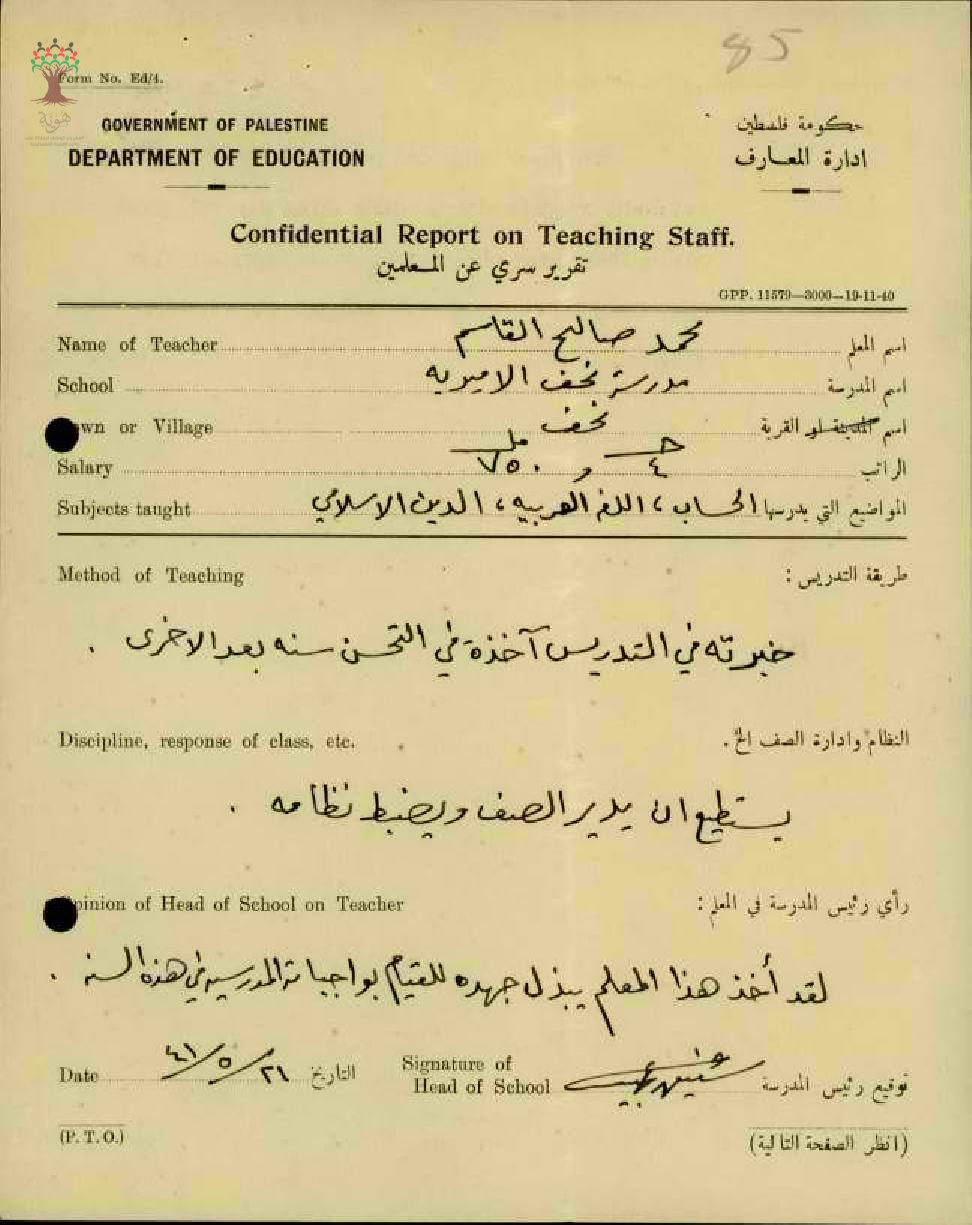 85
Form No. Ed/4.
هوية
GOVERNMENT OF PALESTINE حكومة فلسطين
DEPARTMENT OF EDUCATION ادارة المعارف
Confidential Report on Teaching Staff.
تقرير سري عن المعلمين
GPP. 11579—3000—19-11-40
Name of Teacher محمد صالح القاسم اسم المعلم
School مدرسة نحف الاميريه اسم المدرسة
wn or Village نحف اسم المدينة او القرية
Salary ٧٥٠ مل و ٤ جـ الراتب
Subjects taught المواضيع التي يدرسها الحساب ، اللغة العربيه ، الدين الاسلامي
Method of Teaching طريقة التدريس :
خبرته في التدريس آخذة في التحسن سنه بعد الاخرى .
Discipline, response of class, etc. النظام وادارة الصف الخ .
يستطيع ان يدير الصف ويضبط نظامه .
pinion of Head of School on Teacher رأي رئيس المدرسة في المعلم :
لقد أخذ هذا المعلم يبذل جهده للقيام بواجباته المدرسيه في هذه السنه .
Date ٢١/٥/٤١ التاريخ Signature of
Head of School توقيع رئيس المدرسة
(P. T. O.) (انظر الصفحة التالية)